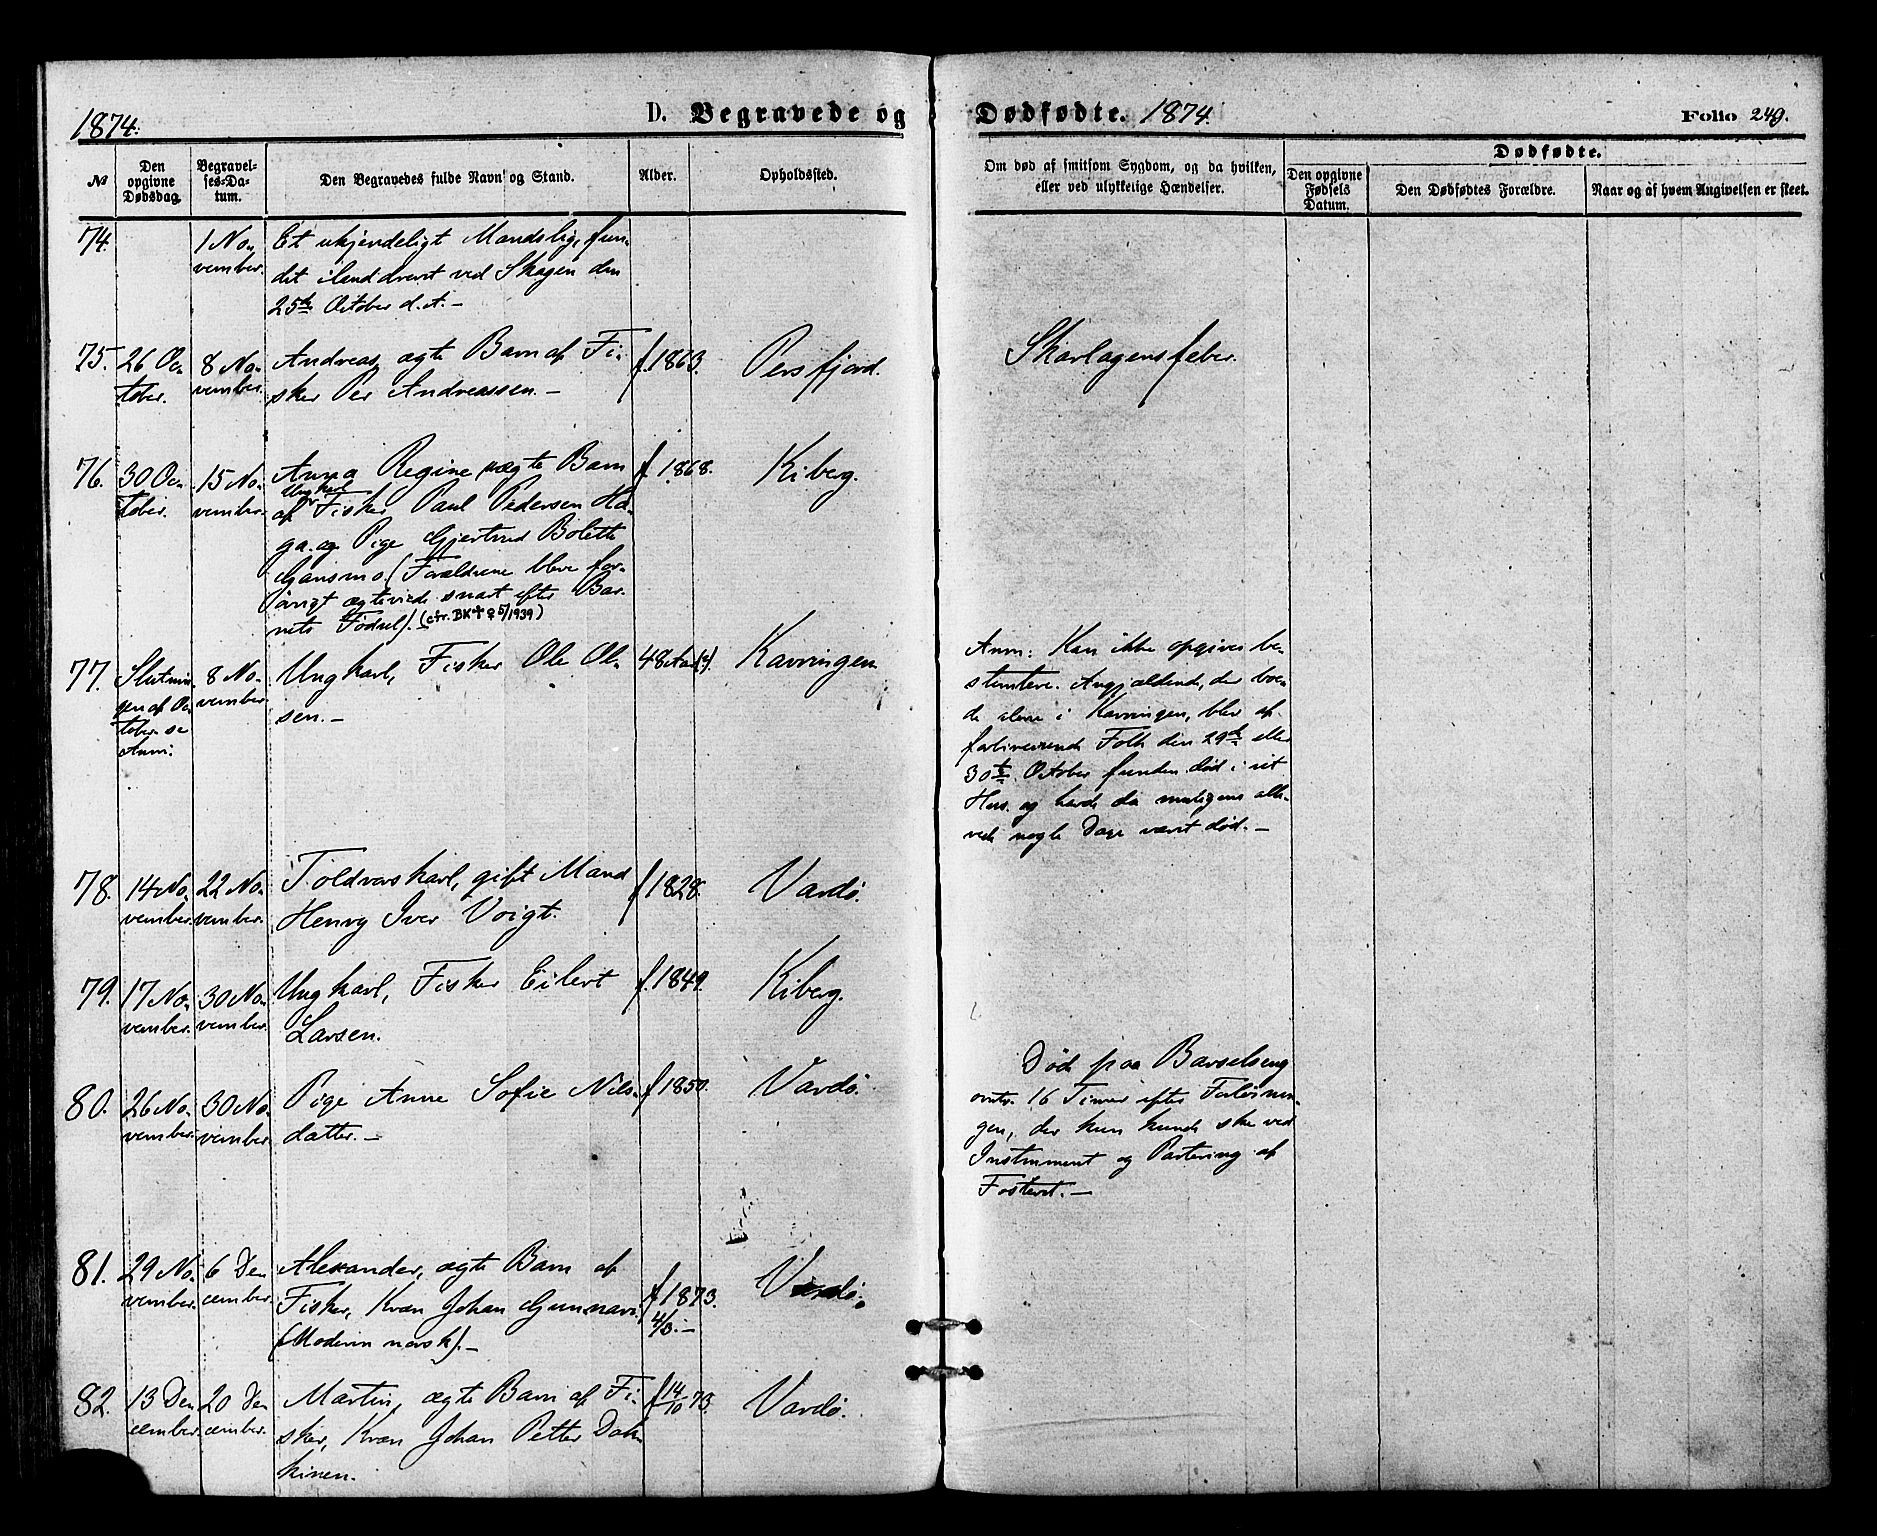 1874.
D. Begravede og Dødfødte. 1874.
Folio 249.
№
Den opgivne Dødsdag.
Begravelses-Datum.
Den Begravedes fulde Navn og Stand.
Alder.
Opholdssted.
Om død af smitsom Sygdom, og da hvilken,
eller ved ulykkelige Hændelser.
Dødfødte.
Den opgivne Fødsels Datum.
Den Dødfødtes Forældre.
Naar og af hvem Angivelsen er skeet.
74.
1 No-
vember.
Et ukjendeligt Mandslig, fun-
det ilanddrevet ved Skagen den
25de October d. A. –
75.
26 Oc-
tober.
8 No-
vember.
Andreas, ægte Barn af Fi-
sker Per Andreassen. –
f. 1863.
Persfjord.
Skarlagensfeber.
76.
30 Oc-
tober.
15 No-
vember.
Anna Regine, uægte Barn
Ungkarl
af Fisker Paul Pedersen Ha-
ga og Pige Gjertrud Bolette
(Forældrene bleve for-
øvrigt ægteviede snart efter Bar-
nets Fødsel). (cfr. BK ✝ ♀ 5/1939)
f. 1868.
Kiberg.
77.
Slutnin-
gen af Oc-
tober se
Anm:
8 No-
vember.
Ungkarl, Fisker Ole Ol-
sen. –
48 Aar (?).
Kavringen
Anm: Kan ikke opgives be-
stemtere. Angjældende, der boe-
de alene i Kavringen, blev af
Folk den 29de eller
30te October funden død i sit
Hus og havde da muligens alle-
rede nogle Dage været død. –
78.
14 No-
vember.
22 No-
vember.
Toldrorskarl, gift Mand
Henry Iver Voigt.
f. 1828.
Vardø.
79.
17 No-
vember.
30 No-
vember.
Ungkarl, Fisker Eilert
Larsen.
f. 1849.
Kiberg.
80.
26 No-
vember.
30 No-
vember.
Pige Anne Sofie Nils-
datter. –
f 1850.
Vardø.
Død paa Barselseng
omtr. 16 Timer efter Forløsnin-
gen, der kun kunde ske ved
Instrument og Partering af
Fosteret. –
81.
29 No-
vember.
6 De-
cember.
Alexander, ægte Barn af
Fisker, Kvæn Johan Gunnari.
(Moderen norsk). –
f 1873.
4/3. –
Vardø.
82.
13 De-
cember.
20 De-
cember.
Martin, ægte Barn af Fi-
sker, Kvæn Johan Petter Dak-
kinen.
f 14/10 73.
Vardø.